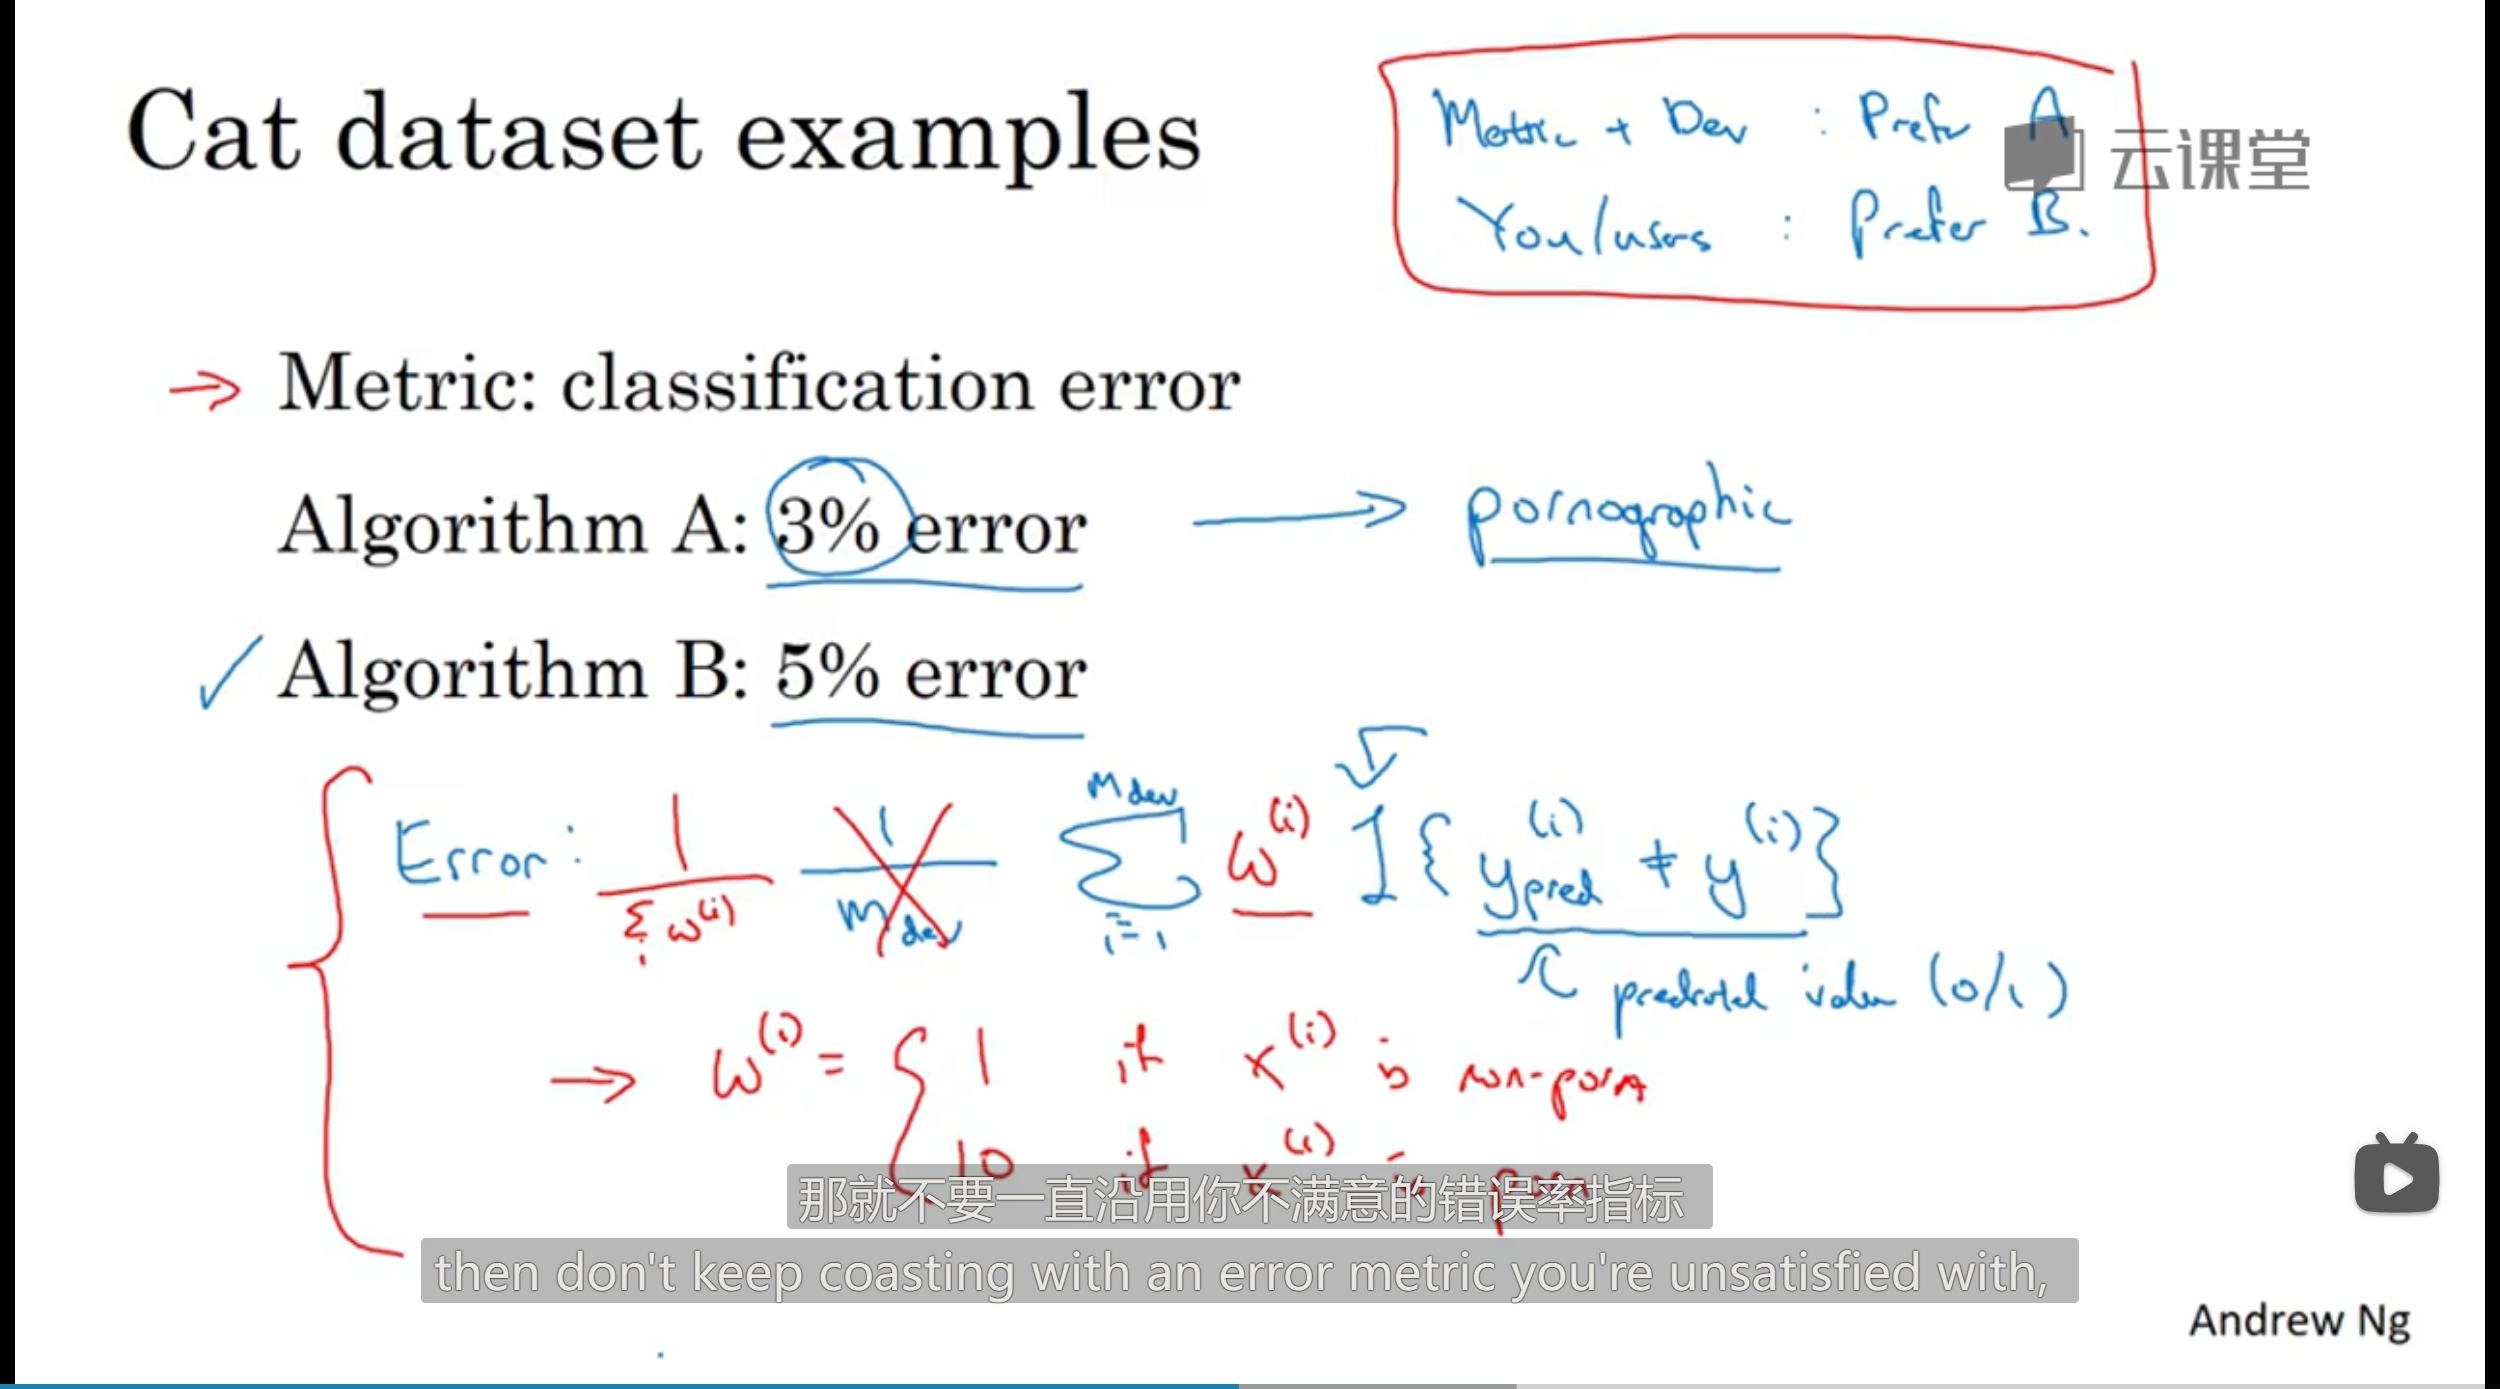 Cat dataset examples
Metric + Dev : Prefer A
You/users : Prefer B.
云课堂
→ Metric: classification error
Algorithm A: 3% error → pornographic
✓ Algorithm B: 5% error
Error: 1/Σᵢ w⁽ⁱ⁾ 1/m_dev Σᵢ₌₁^m_dev w⁽ⁱ⁾ I{y_pred⁽ⁱ⁾ ≠ y⁽ⁱ⁾}
predicted value (0/1)
→ w⁽ⁱ⁾ = { 1 if x⁽ⁱ⁾ is non-porn
10 if x⁽ⁱ⁾ is porn
那就不要一直沿用你不满意的错误率指标
then don't keep coasting with an error metric you're unsatisfied with,
Andrew Ng